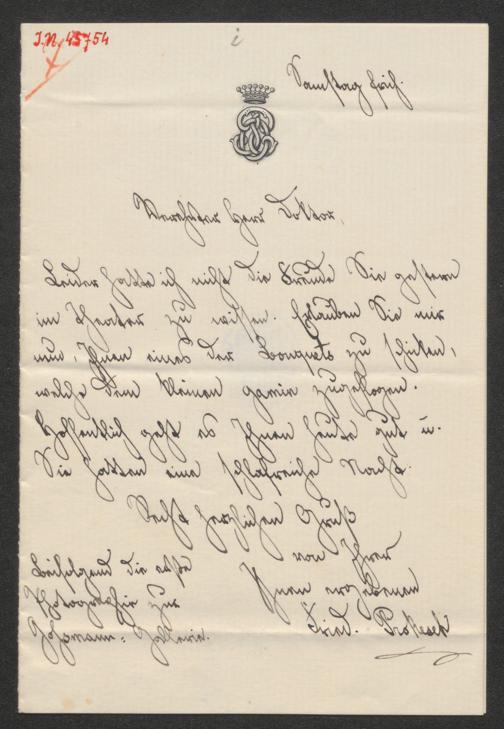 I.N. 45754
i
Samstag früh.
Verehrter Herr Doktor,
Leider hatte ich nicht die Freude Sie gestern
im Theater zu wissen. Erlauben Sie mir
nun, Ihnen eines der Bouquets zu schicken,
welche dem kleinen gamin zugeflogen.
Hoffentlich geht es Ihnen heute gut u.
Sie hatten eine schlafreiche Nacht.
Recht herzlichen Gruß
von Ihrer
Ihnen ergebenen
Fried. Prokesch
Beifolgend die erste
Photographie zur
Gallerie.